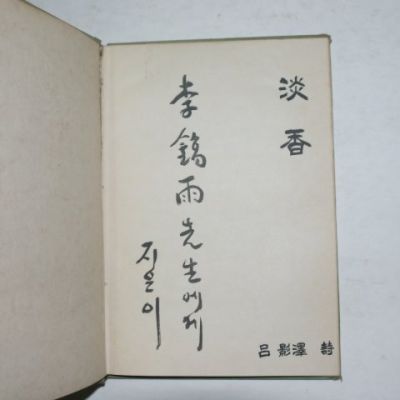 淡香
李鎬雨先生에게
지은이
呂影澤 詩